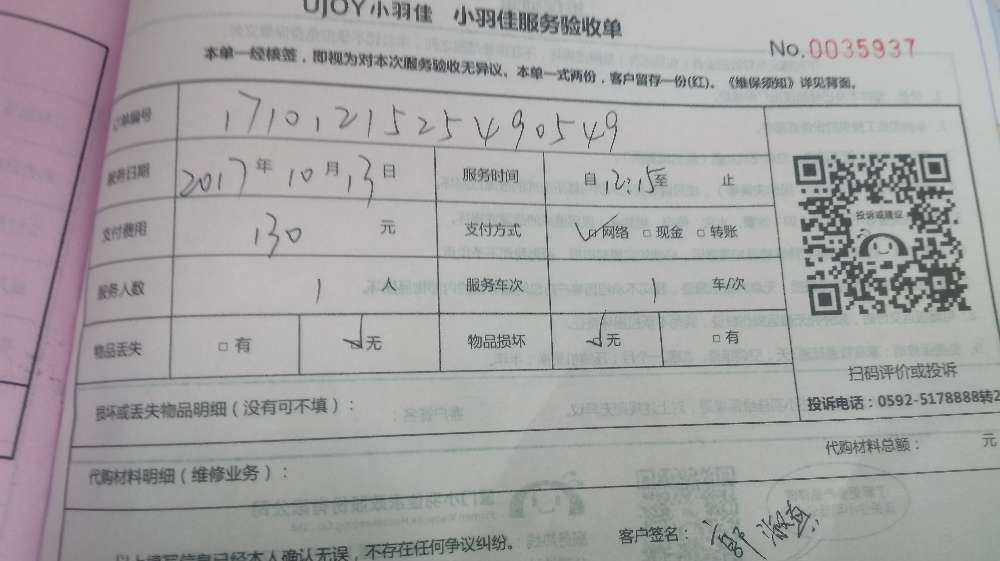 UJOY小羽佳 小羽佳服务验收单
No.0035937
本单一经核签，即视为对本次服务验收无异议。本单一式两份，客户留存一份(红)。《维保须知》详见背面。
订单编号 17101215254490549
服务日期 2017年10月13日 服务时间 自12:15至 止
支付费用 130 元 支付方式 □网络 □现金 □转账
服务人数 1 人 服务车次 1 车/次
物品丢失 □有 □无 物品损坏 □无 □有
投诉或建议
扫码评价或投诉
投诉电话：0592-5178888转2
损坏或丢失物品明细（没有可不填）：
代购材料总额： 元
代购材料明细（维修业务）：
客户签名：
以上填写信息已经本人确认无误，不存在任何争议纠纷。